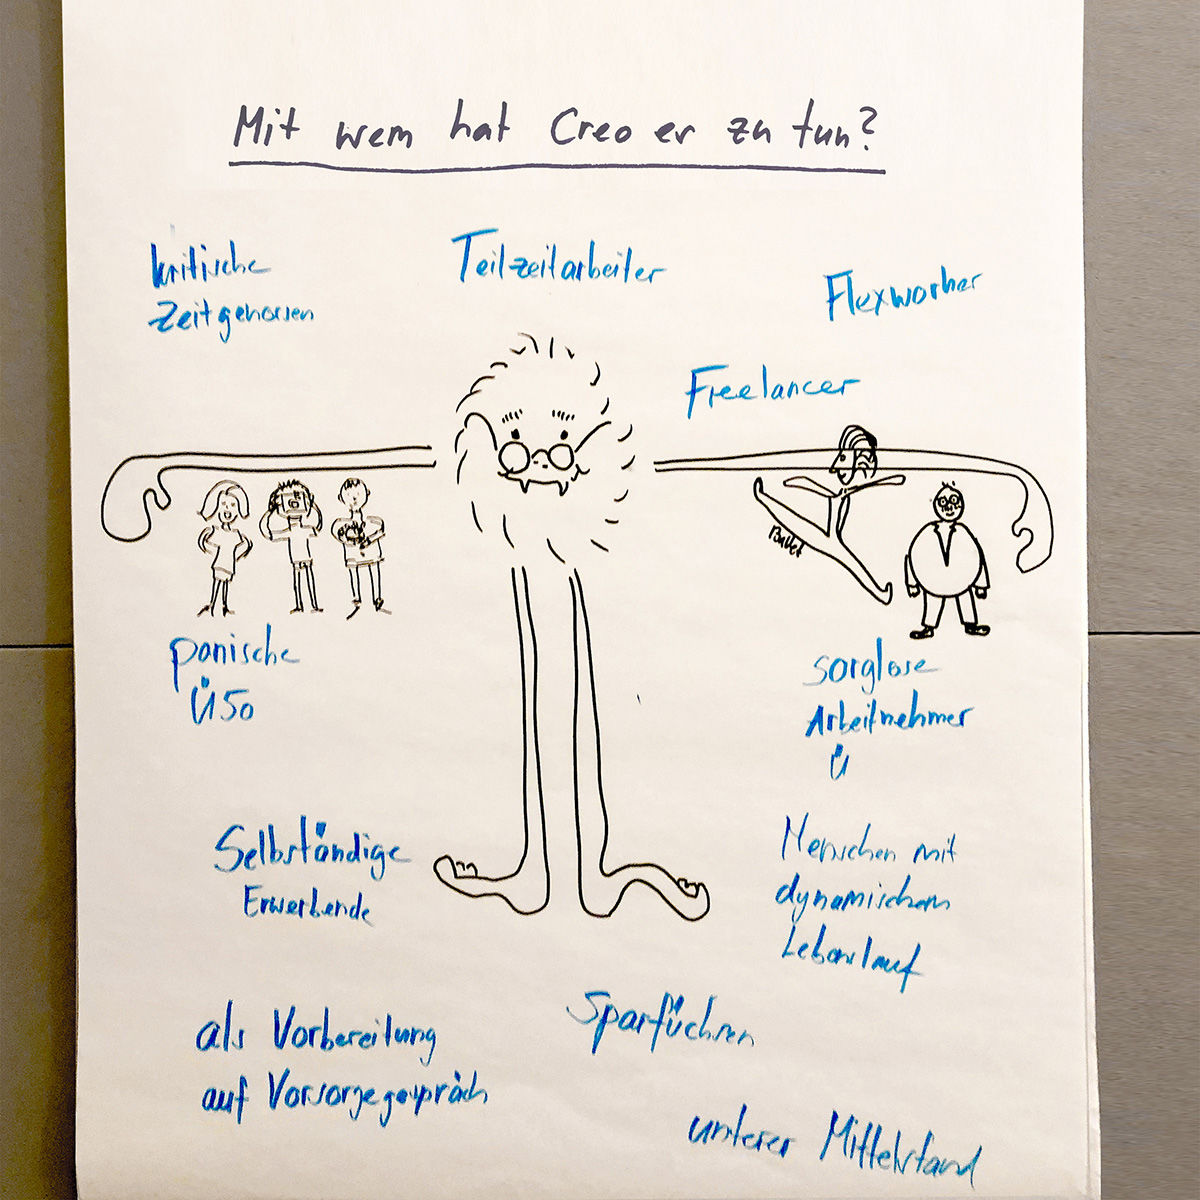 Mit wem hat Creo er zu tun?
kritische
Zeitgenossen
Teilzeitarbeiter
Flexworker
Freelancer
Ballet
panische
Ü50
sorglose
Arbeitnehmer
Ü
Selbständige
Erwerbende
Menschen mit
dynamischem
Lebenslauf
als Vorbereitung
auf Vorsorgegespräch
Sparfüchsen
unterer Mittelstand